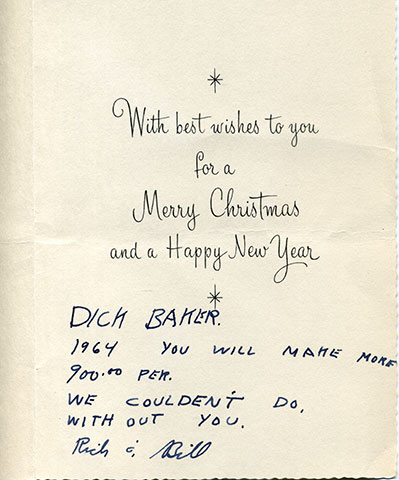 With best wishes to you
for a
Merry Christmas
and a Happy New Year
DICK BAKER.
1964 YOU WILL MAKE MORE
900.00 PER.
WE COULDEN'T DO,
WITH OUT YOU.
Rich & Bill